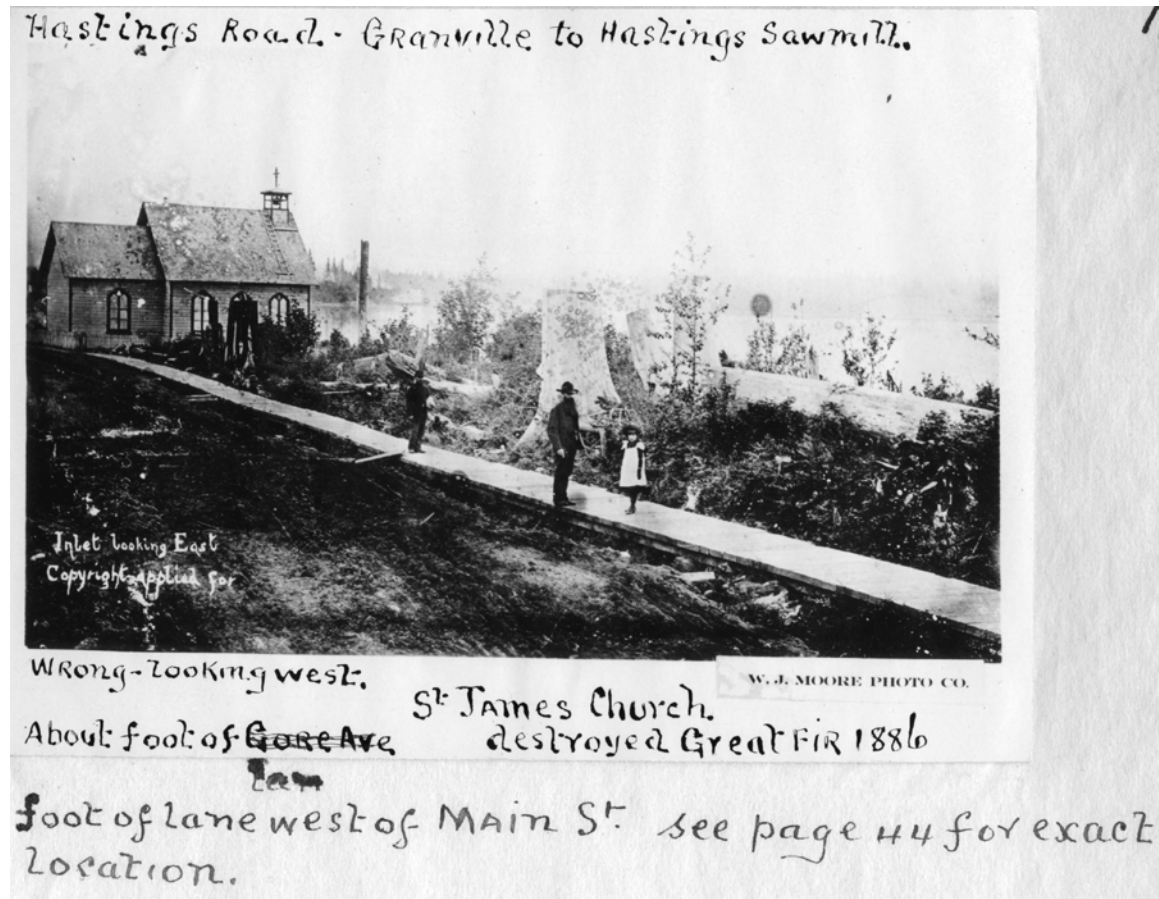 Hastings Road - Granville to Hastings Sawmill.
Inlet looking East
Copyright applied for
Wrong - looking west.
W. J. MOORE PHOTO CO.
St James Church.
About foot of Gore Ave
destroyed Great Fir 1886
foot of lane west of Main St. see page 44 for exact
location.